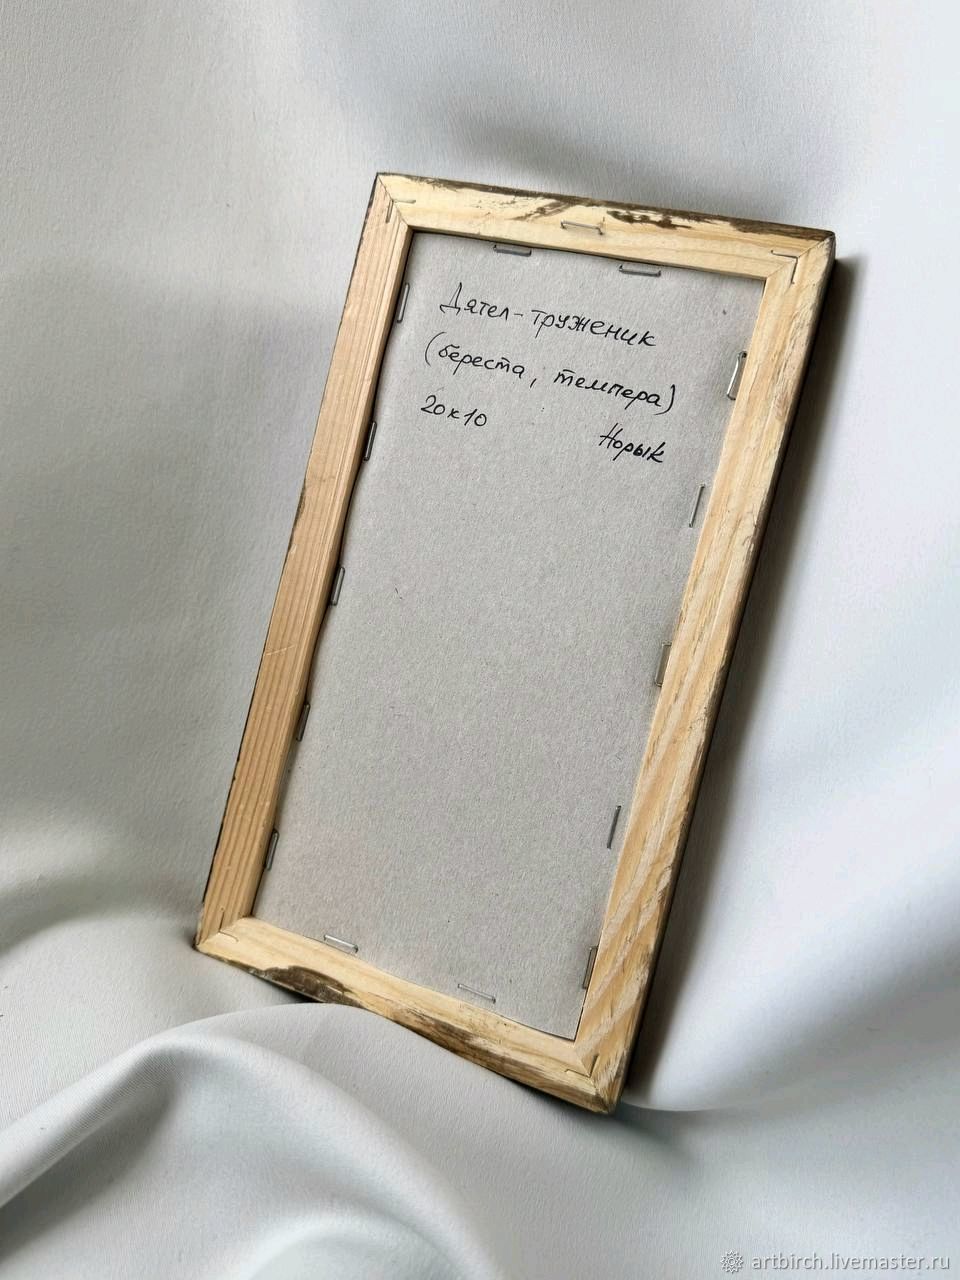 Дятел-труженик
(береста, темпера)
20х10
Норык
artbirch.livemaster.ru